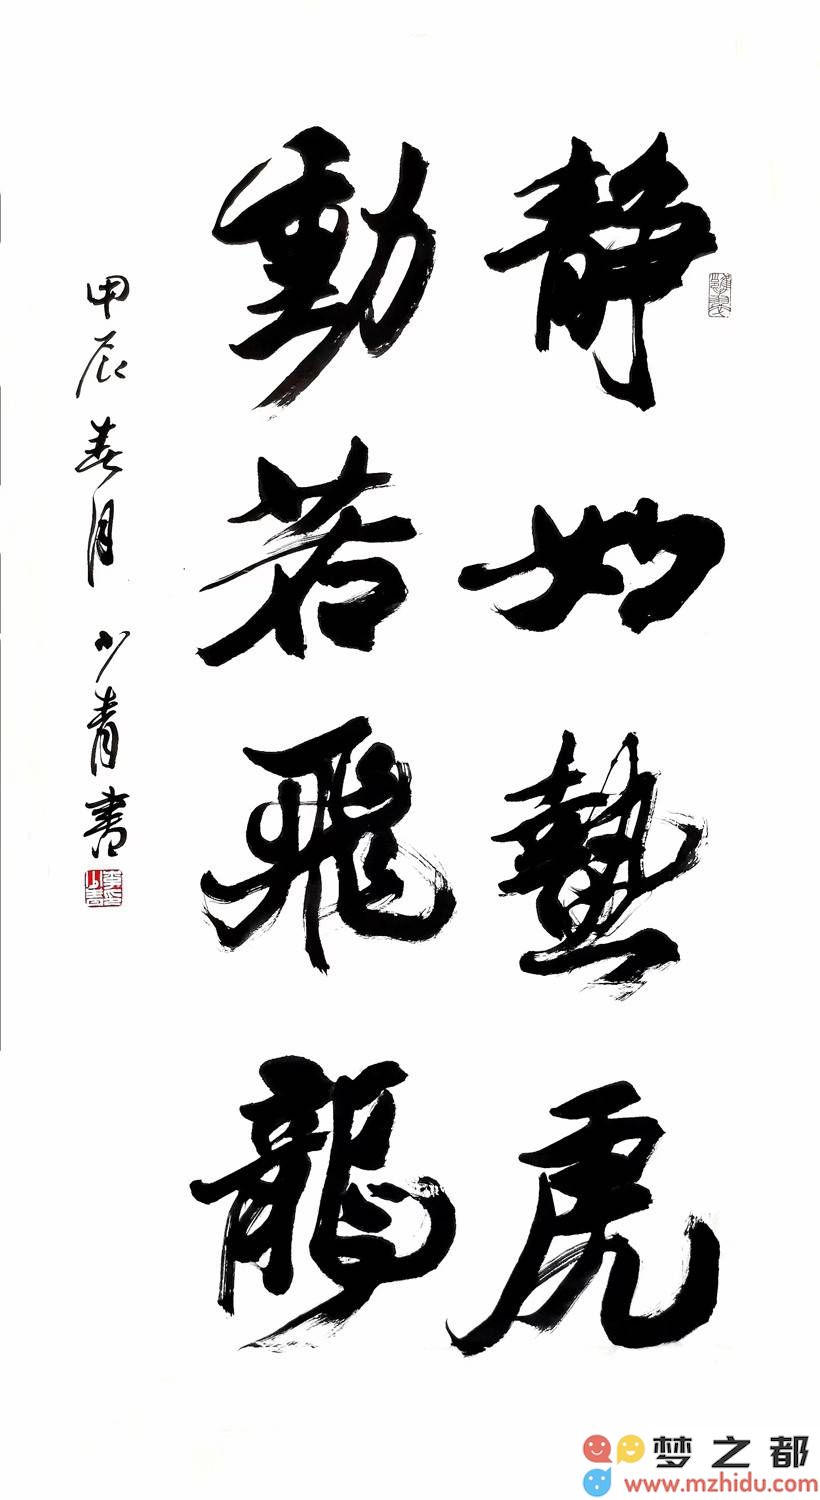 静如蛰虎
動若飛龍
甲辰春月 少青書
梦之都
www.mzhidu.com